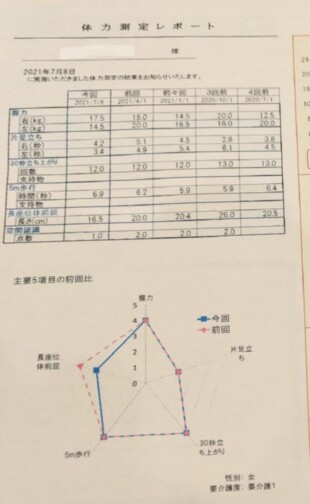 体力測定レポート
様
2021年7月8日
に実施いただきました体力測定の結果をお知らせいたします。
今回 前回 前々回 3回前 4回前
2021/7/8 2021/4/1 2021/1/1 2020/10/1 2020/7/1
握力
右(kg) 17.5 18.0 14.5 20.0 12.5
左(kg) 14.5 20.0 16.5 18.0 20.0
片足立ち
右(秒) 4.2 5.1 4.8 2.8 3.8
左(秒) 3.4 4.9 5.4 6.1 4.5
30秒立ち上がり
回数 12.0 12.0 12.0 13.0 13.0
支持物
5m歩行
時間(秒) 6.9 6.2 5.9 5.9 6.4
支持物
長座位体前屈
長さ(cm) 16.5 20.0 20.4 26.0 20.5
空間認識
点数 1.0 2.0 2.0 2.0
主要5項目の前回比
握力
5
4
3
2
1
0
今回
前回
片足立
ち
30秒立
ち上がり
5m歩行
長座位
体前屈
性別: 女
要介護度: 要介護1